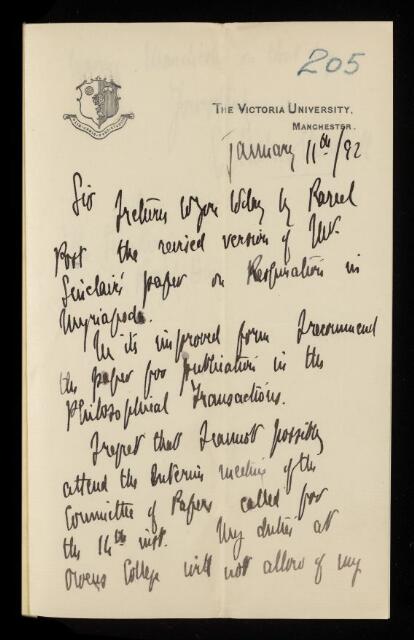 205
THE VICTORIA UNIVERSITY.
MANCHESTER.
January 11th/92
Sir I return to you today by Parcel
Post the revised version of Mr.
Sinclair's paper on Respiration in
Myriapods.
In its improved form I recommend
the paper for publication in the
Philosophical Transactions.
I regret that I cannot possibly
attend the Interim meeting of the
Committee of Papers called for
the 14th inst. My duties at
Owens College will not allow of my